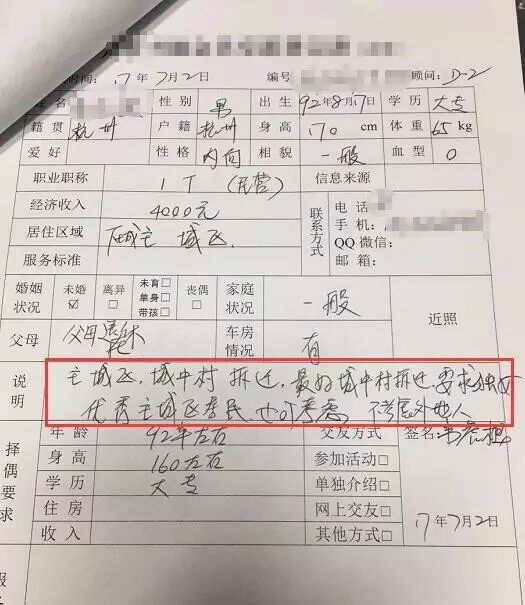 时间：17年7月2日 编号 顾问：D-2
姓名 性别 男 出生 92年8月17日 学历 大专
籍贯 杭州 户籍 杭州 身高 170 cm 体重 65 kg
爱好 性格 内向 相貌 一般 血型 O
职业职称 IT (民营) 信息来源
经济收入 4000元 联系方式 电话
手机：
居住区域 主城区 QQ微信：
服务标准 邮箱：
婚姻状况 未婚☑ 离异□ 未育□ 单身□ 带孩□ 丧偶□ 家庭状况 一般 近照
父母 父母退休 车房情况 有
说明 主城区，城中村拆迁，最好城中村拆迁，要求独女
优秀主城区居民也可考虑 不考虑外地人
择偶要求 年龄 92年左右 交友方式 签名
身高 160左右 参加活动□
学历 大专 单独介绍□
住房 网上交友□ 17年7月2日
收入 其他方式□